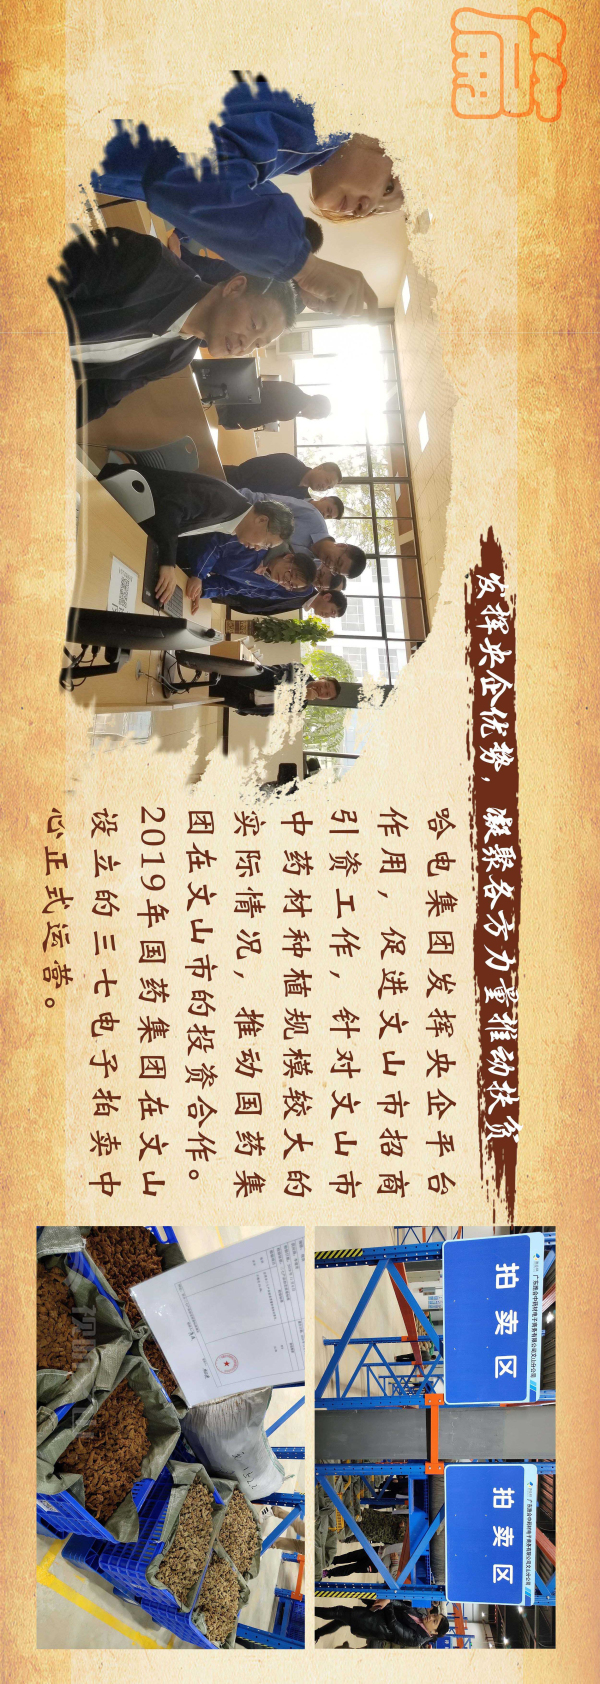 发挥央企优势，凝聚各方力量推动扶贫
哈电集团发挥央企平台
作用，促进文山市招商
引资工作，针对文山市
中药材种植规模较大的
实际情况，推动国药集
团在文山市的投资合作。
2019年国药集团在文山
设立的三七电子拍卖中
心正式运营。
拍卖区
拍卖区